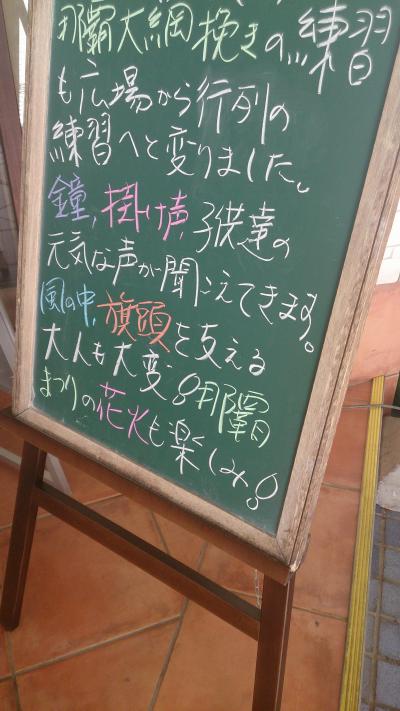 那覇大綱挽きの練習
も広場から行列の
練習へと変りました。
鐘,掛け声,子供達の
元気な声が聞こえてきます。
風の中,旗頭を支える
大人も大変!那覇
まつりの花火も楽しみ!